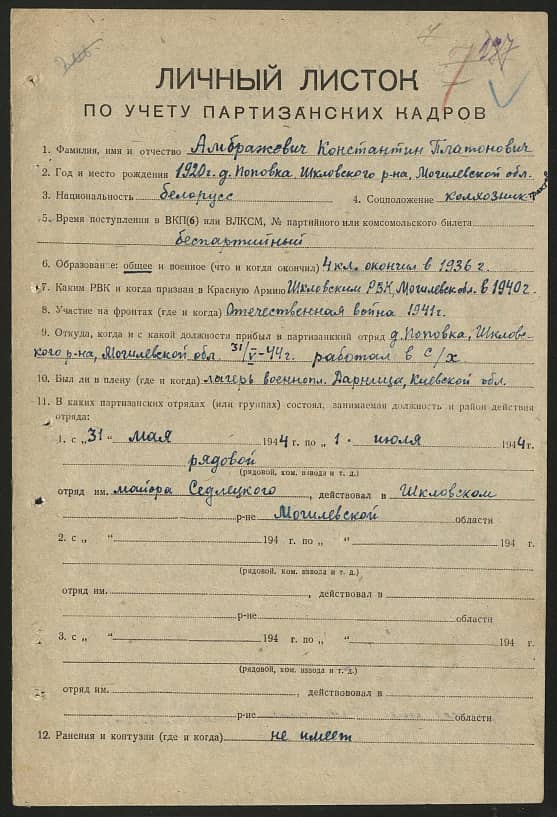 7 237
ЛИЧНЫЙ ЛИСТОК
ПО УЧЕТУ ПАРТИЗАНСКИХ КАДРОВ
1. Фамилия, имя и отчество Амбражевич Константин Платонович
2. Год и место рождения 1920г. д. Поповка, Шкловского р-на, Могилевск. обл.
3. Национальность белорусс 4. Соцположение колхозник
5. Время поступления в ВКП(б) или ВЛКСМ, № партийного или комсомольского билета
беспартийный
6. Образование: общее и военное (что и когда окончил) 4 кл. окончил в 1936 г.
7. Каким РВК и когда призван в Красную Армию Шкловским РВК, Могилевск обл. в 1940 г.
8. Участие на фронтах (где и когда) Отечественная война 1941г.
9. Откуда, когда и с какой должности прибыл в партизанкий отряд д. Поповка, Шклов-
кого р-на, Могилевской обл. 31/V-44г. работал в с/х
10. Был ли в плену (где и когда) лагерь военнопл. Дарница, Киевской обл.
11. В каких партизанских отрядах (или группах) состоял, занимаемая должность и район действия
отряда:
1. с „31" мая 1944 г. по „1." июля 1944г.
рядовой
(рядовой, ком. взвода и т. д.)
отряд им. майора Седлецкого, действовал в Шкловском
р-не Могилевской области
2. с „ " 194 г. по „ " 194 г.
(рядовой, ком. взвода и т. д.)
отряд им. , действовал в
р-не области
3. с „ " 194 г. по „ " 194 г.
(рядовой, ком. взвода и т. д.)
отряд им. , действовал в
р-не области
12. Ранения и контузии (где и когда) не имеет